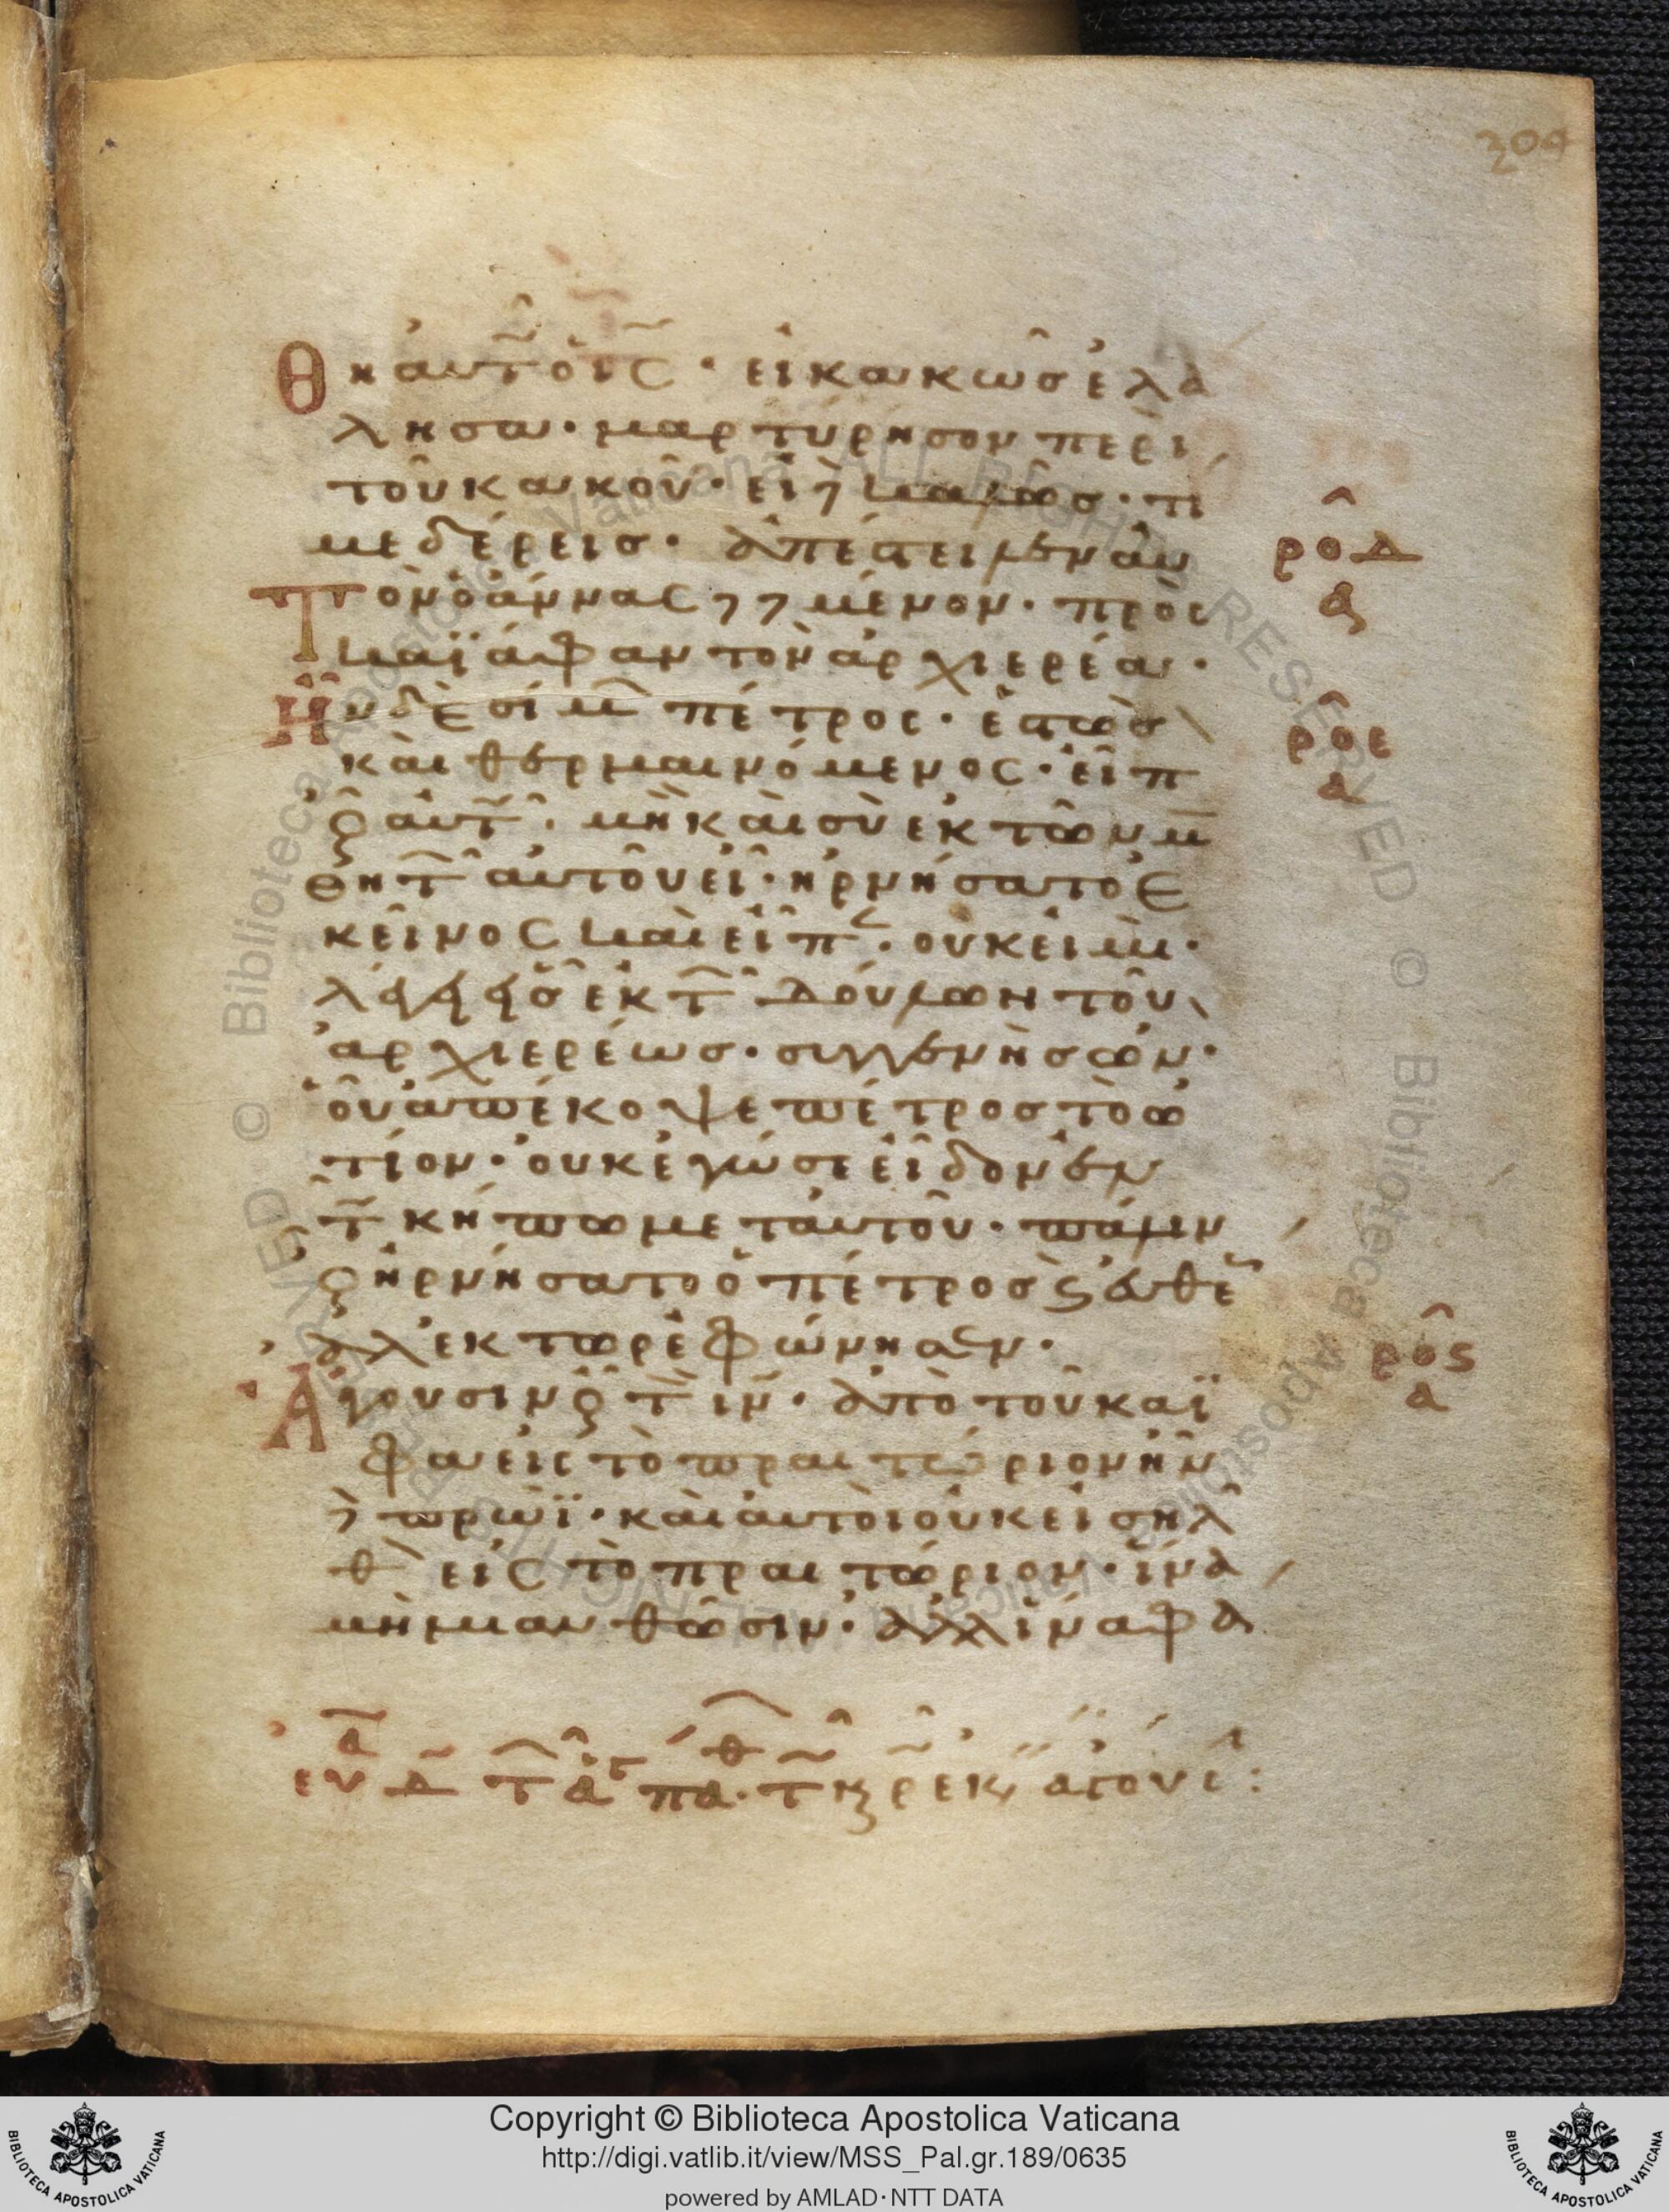 304
Θη αὐτ̃ ὁ ἰς̃ · εἰ κακῶς ἐλά
λησα · μαρτύρησον περὶ
τοῦ κακοῦ · εἰ δὲ καλῶς · τί
με δέρεις · ἀπέστειλεν αὐ
Τὸν ὁ ἄννας δεδεμένον · πρὸς
καϊάφαν τὸν ἀρχιερέα ·
Ἦν δὲ σίμ̅ πέτρος · ἑστὼς
καὶ θερμαινόμενος · εἶπ
ο̑ν αὐτ̃ · μὴ καὶ σὺ ἐκ τῶν μ̅
θητ̅ αὐτοῦ εἶ · ἠρνήσατο ἐ
κεῖνος καὶ εἶπ · οὐκ εἰμὶ ·
λέγει εἷς ἐκ τ̅ δούλων τοῦ
ἀρχιερέως · συγγενὴς ὢν ·
οὗ ἀπέκοψε πέτρος τὸ ὠ
τίον · οὐκ ἐγώ σε εἶδον ἐν
τ̃ κήπω μετ αὐτοῦ · πάλιν
ο̑ν ἠρνήσατο ὁ πέτρος ϛ εὐθέ
ἀλέκτωρ ἐφώνησεν ·
Ἄγουσιν ο̑ν τ̅ ἰν̅ · ἀπὸ τοῦ καϊ
φα εἰς τὸ πραιτώριον ἦν
δὲ πρωῒ · καὶ αὐτοὶ οὐκ εἰσῆλ
θ εἰς τὸ πραιτώριον · ἵνα
μὴ μιανθῶσιν · ἀλλ ἵνα φά
ροδ
α
ροε
α
ροϛ
α
Copyright © Biblioteca Apostolica Vaticana
http://digi.vatlib.it/view/MSS_Pal.gr.189/0635
powered by AMLAD·NTT DATA
BIBLIOTECA APOSTOLICA VATICANA
BIBLIOTECA APOSTOLICA VATICANA